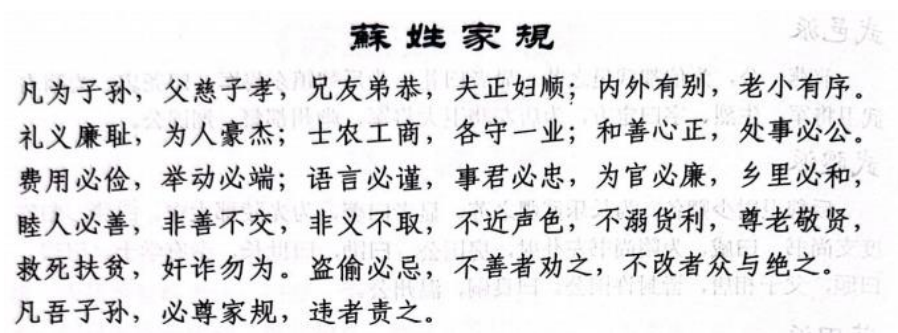 蘇姓家規
凡为子孙，父慈子孝，兄友弟恭，夫正妇顺；内外有别，老小有序。
礼义廉耻，为人豪杰；士农工商，各守一业；和善心正，处事必公。
费用必俭，举动必端；语言必谨，事君必忠，为官必廉，乡里必和，
睦人必善，非善不交，非义不取，不近声色，不溺货利，尊老敬贤，
救死扶贫，奸诈勿为。盗偷必忌，不善者劝之，不改者众与绝之。
凡吾子孙，必尊家规，违者责之。